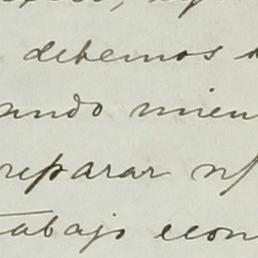 debemos
ando mien
reparar nf
tabajo econ